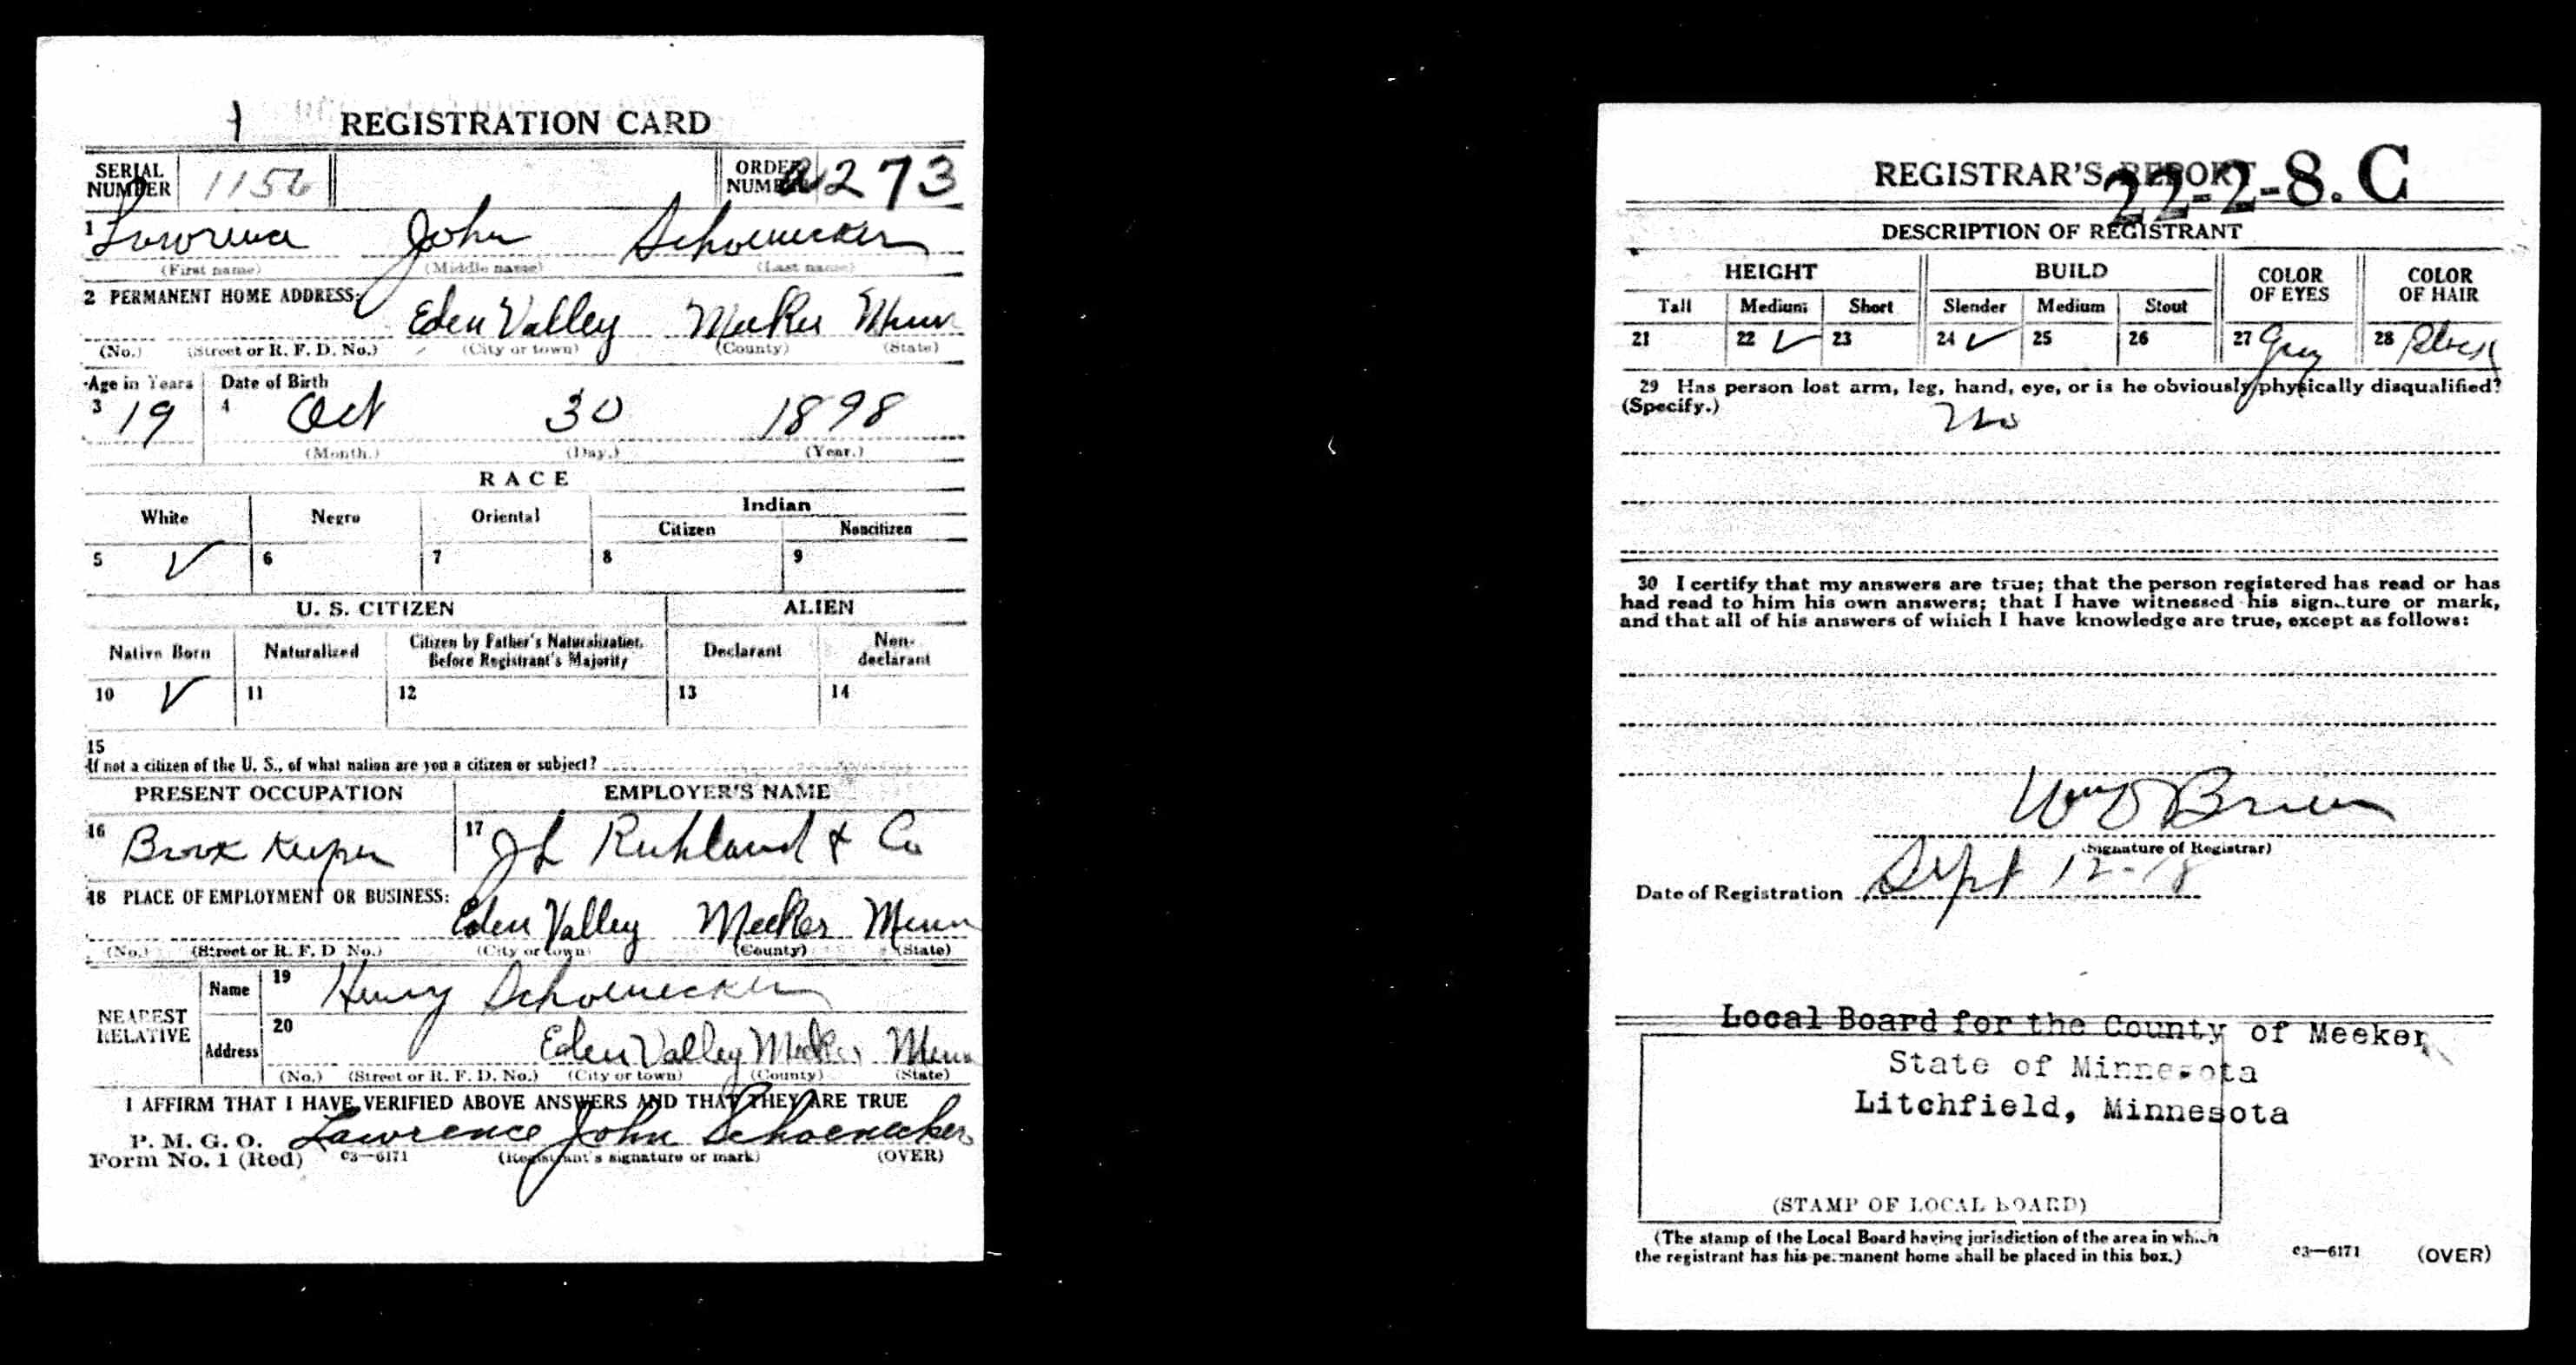 REGISTRATION CARD
SERIAL NUMBER 1156 ORDER NUMBER A273
1 Lawrence John Schoenecker
(First name) (Middle name) (Last name)
2 PERMANENT HOME ADDRESS:
Eden Valley Meeker Minn
(No.) (Street or R. F. D. No.) (City or town) (County) (State)
Age in Years Date of Birth
3 19 4 Oct 30 1898
(Month.) (Day.) (Year.)
RACE
White Negro Oriental Indian
Citizen Noncitizen
5 ✓ 6 7 8 9
U. S. CITIZEN ALIEN
Native Born Naturalized Citizen by Father's Naturalization Before Registrant's Majority Declarant Non-declarant
10 ✓ 11 12 13 14
15
If not a citizen of the U. S., of what nation are you a citizen or subject?
PRESENT OCCUPATION EMPLOYER'S NAME
16 Book Keeper 17 J L Ruhland & Co
18 PLACE OF EMPLOYMENT OR BUSINESS:
Eden Valley Meeker Minn
(No.) (Street or R. F. D. No.) (City or town) (County) (State)
NEAREST RELATIVE
Name 19 Henry Schoenecker
Address 20 Eden Valley Meeker Minn
(No.) (Street or R. F. D. No.) (City or town) (County) (State)
I AFFIRM THAT I HAVE VERIFIED ABOVE ANSWERS AND THAT THEY ARE TRUE
P. M. G. O. Lawrence John Schoenecker
Form No. 1 (Red) 03—6171 (Registrant's signature or mark) (OVER)
REGISTRAR'S REPORT
22-2-8. C
DESCRIPTION OF REGISTRANT
HEIGHT BUILD COLOR OF EYES COLOR OF HAIR
Tall Medium Short Slender Medium Stout
21 22 ✓ 23 24 ✓ 25 26 27 Gray 28 Black
29 Has person lost arm, leg, hand, eye, or is he obviously physically disqualified?
(Specify.) No
30 I certify that my answers are true; that the person registered has read or has
had read to him his own answers; that I have witnessed his signature or mark,
and that all of his answers of which I have knowledge are true, except as follows:
(Signature of Registrar)
Date of Registration Sept 12-18
Local Board for the County of Meeker
State of Minnesota
Litchfield, Minnesota
(STAMP OF LOCAL BOARD)
(The stamp of the Local Board having jurisdiction of the area in which
the registrant has his permanent home shall be placed in this box.)
03—6171 (OVER)